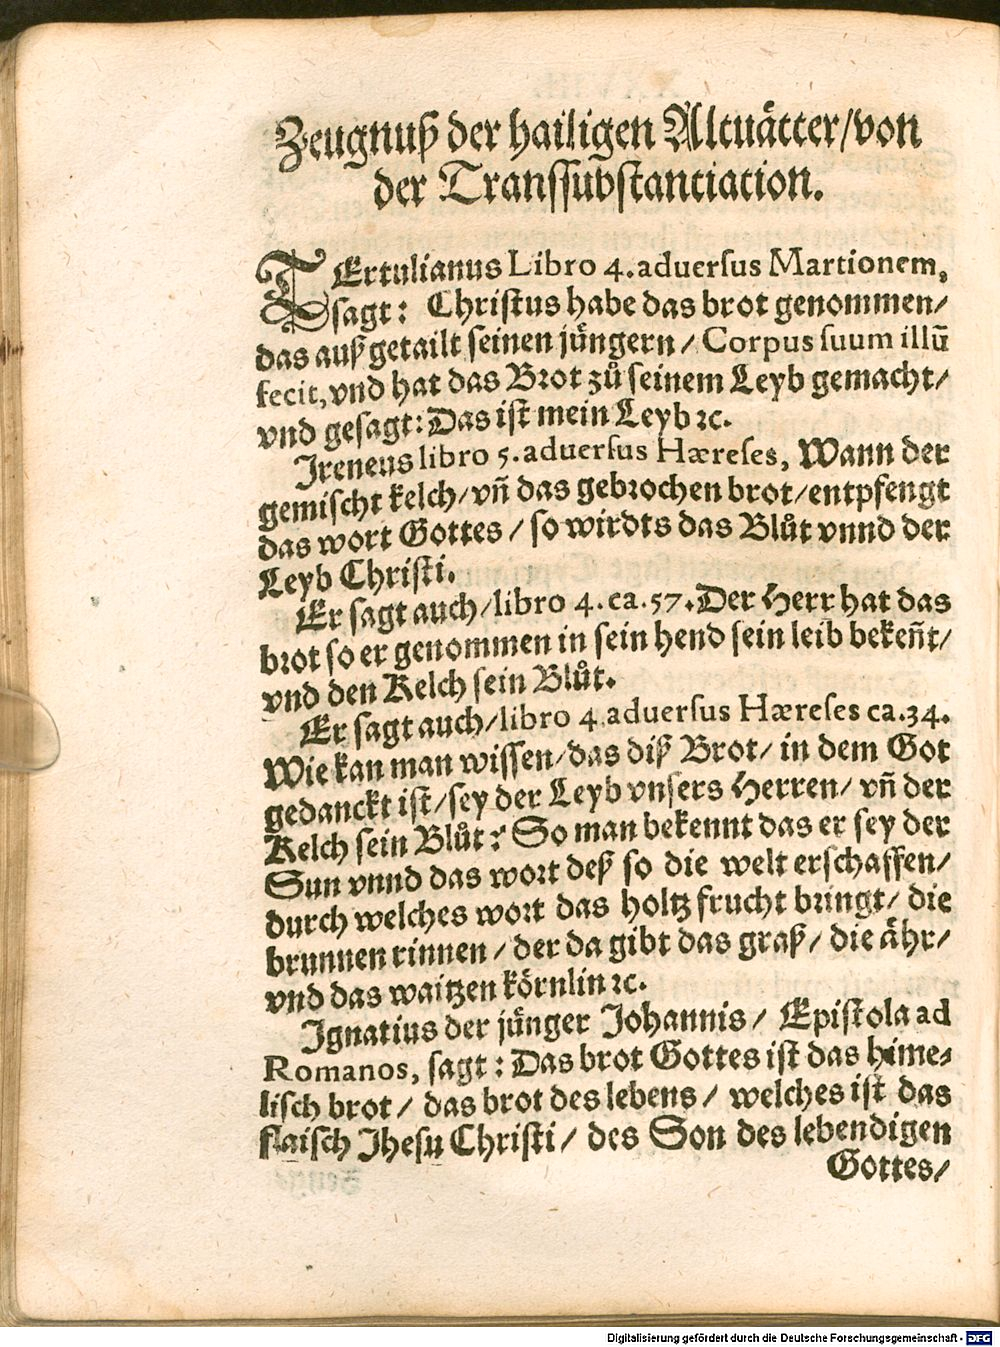 Zeugnuß der hailigen Altuätter/von
der Transsubstantiation.
TErtulianus Libro 4. aduersus Martionem,
sagt: Christus habe das brot genommen/
das auß getailt seinen jüngern/ Corpus suum illũ
fecit, vnd hat das Brot zů seinem Leyb gemacht/
vnd gesagt: Das ist mein Leyb ꝛc.
Jreneus libro 5. aduersus Hæreses, Wann der
gemischt kelch/ vñ das gebrochen brot/ entpfengt
das wort Gottes/ so wirdts das Blůt vnnd der
Leyb Christi.
Er sagt auch/ libro 4. ca. 57. Der Herr hat das
brot so er genommen in sein hend sein leib bekeñt/
vnd den Kelch sein Blůt.
Er sagt auch/ libro 4 aduersus Hæreses ca. 34.
Wie kan man wissen/ das diß Brot/ in dem Got
gedanckt ist/ sey der Leyb vnsers Herren/ vñ der
Kelch sein Blůt? So man bekennt das er sey der
Sun vnnd das wort deß so die welt erschaffen/
durch welches wort das holtz frucht bringt/ die
brunnen rinnen/ der da gibt das graß/ die ähr/
vnd das waitzen körnlin ꝛc.
Jgnatius der jünger Johannis/ Epistola ad
Romanos, sagt: Das brot Gottes ist das hime-
lisch brot/ das brot des lebens/ welches ist das
flaisch Jhesu Christi/ des Son des lebendigen
Gottes/
Digitalisierung gefördert durch die Deutsche Forschungsgemeinschaft - DFG